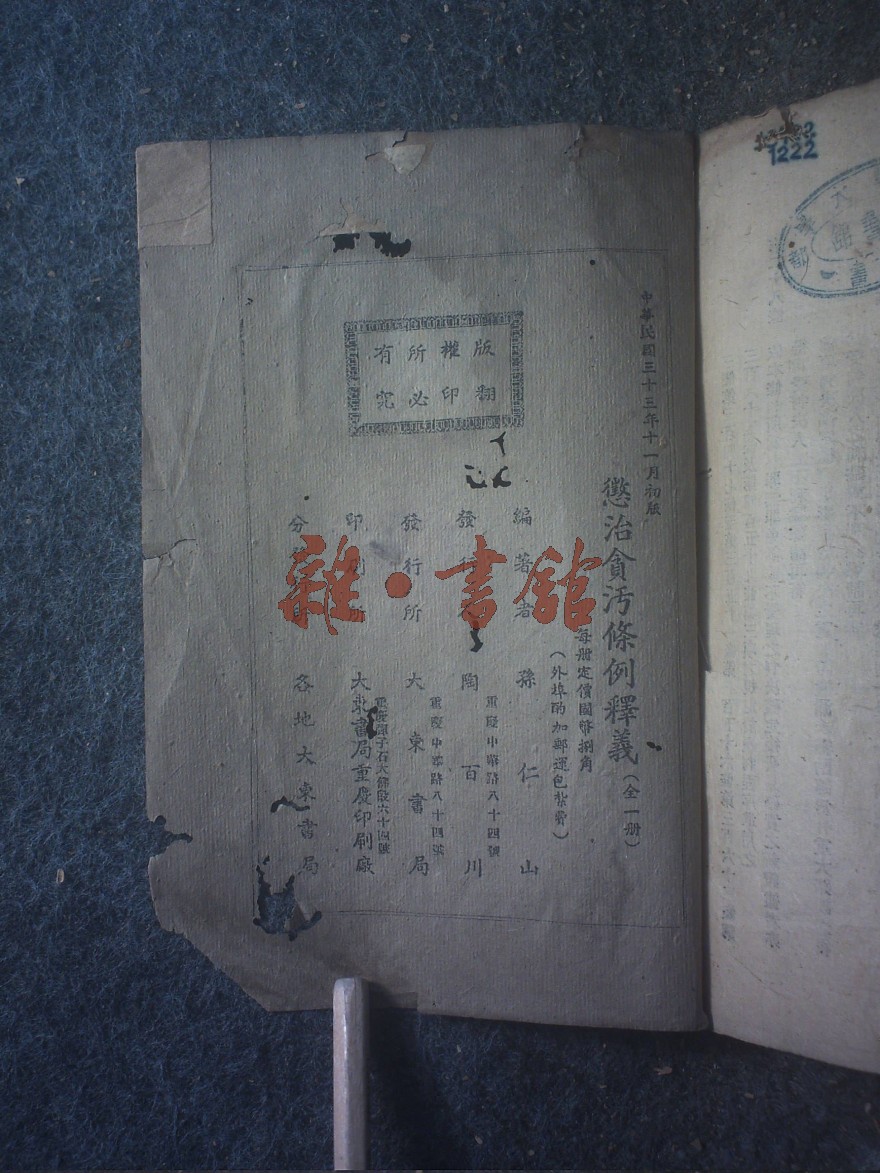 中華民國三十三年十一月初版
懲治貪污條例釋義（全一册）
每册定價國幣捌角
（外埠酌加郵運包紮費）
編著者 孫仁山
重慶中華路八十四號
發行 陶百川
重慶中華路八十四號
發行所 大東書局
重慶彈子石大佛段六十四號
印刷所 大東書局重慶印刷廠
分 各地大東書局
版權所有
翻印必究
雜·書館
1222